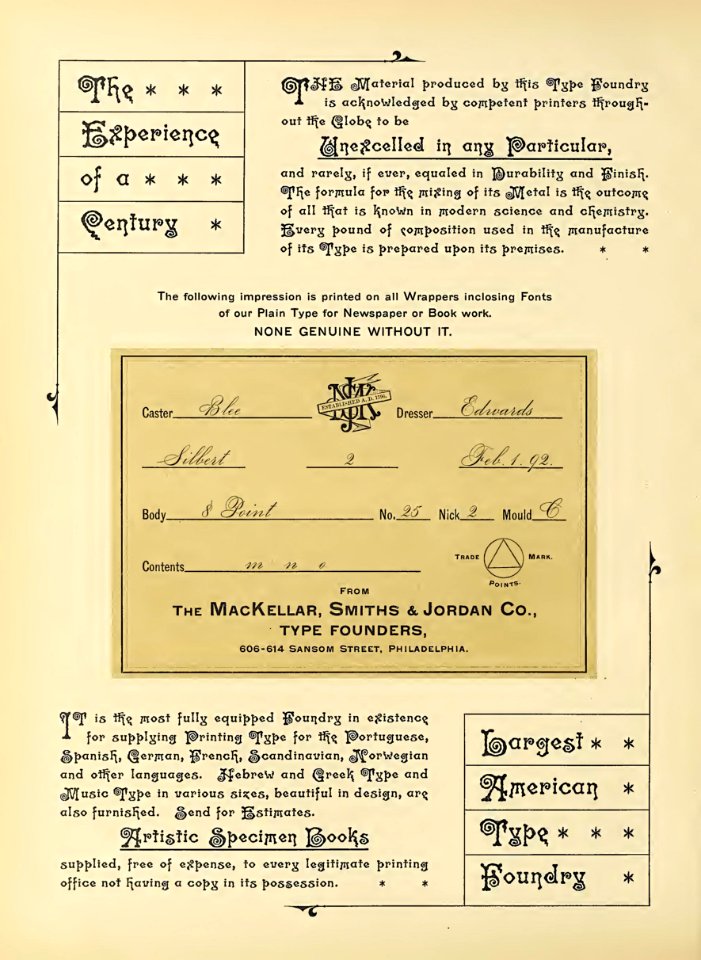 The * * *
Experience
of a * * *
Century *
THE Material produced by this Type Foundry
is acknowledged by competent printers through-
out the Globe to be
Unexcelled in any Particular,
and rarely, if ever, equaled in Durability and Finish.
The formula for the mixing of its Metal is the outcome
of all that is known in modern science and chemistry.
Every pound of composition used in the manufacture
of its Type is prepared upon its premises. * *
The following impression is printed on all Wrappers inclosing Fonts
of our Plain Type for Newspaper or Book work.
NONE GENUINE WITHOUT IT.
ESTABLISHED A.D. 1796.
Caster Blee Dresser Edwards
Silbert 2 Feb. 1. 92.
Body 8 Point No. 25 Nick 2 Mould C
Contents m n o
TRADE MARK.
POINTS.
FROM
THE MACKELLAR, SMITHS & JORDAN CO.,
TYPE FOUNDERS,
606-614 SANSOM STREET, PHILADELPHIA.
IT is the most fully equipped Foundry in existence
for supplying Printing Type for the Portuguese,
Spanish, German, French, Scandinavian, Norwegian
and other languages. Hebrew and Greek Type and
Music Type in various sizes, beautiful in design, are
also furnished. Send for Estimates.
Artistic Specimen Books
supplied, free of expense, to every legitimate printing
office not having a copy in its possession. * *
Largest * *
American *
Type * * *
Foundry *